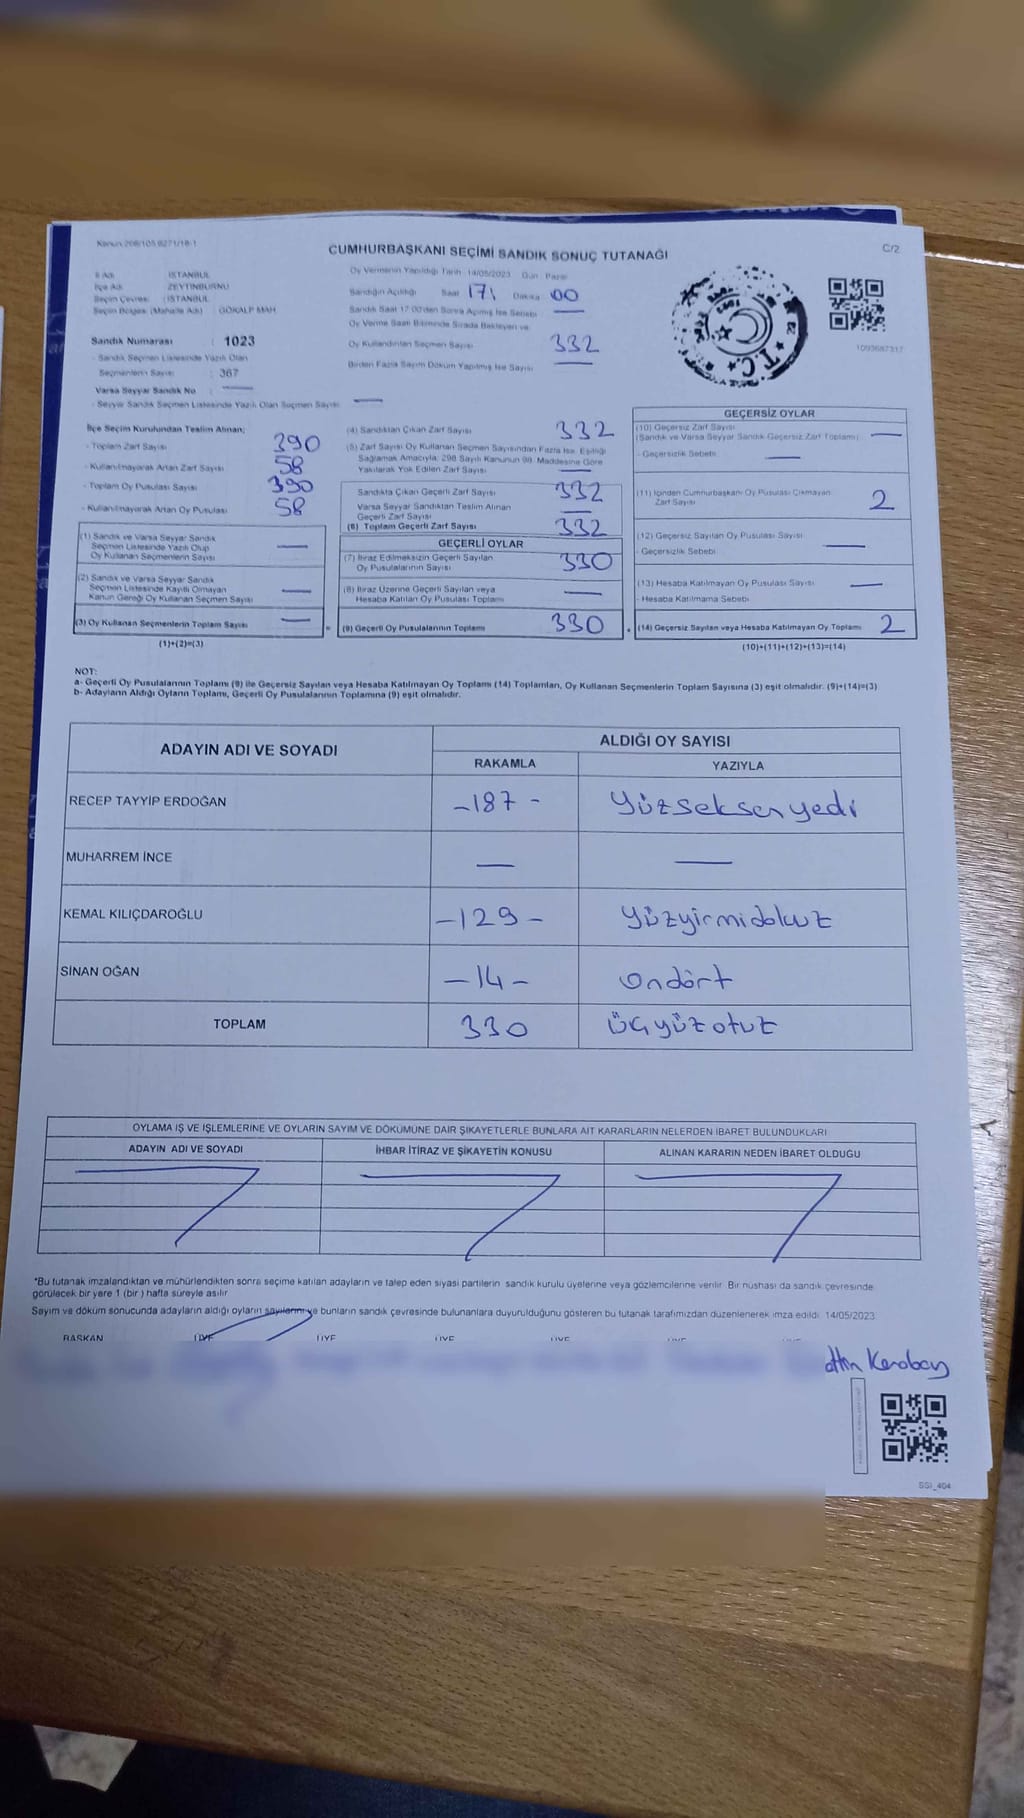 Kanun:298/105 6271/18-1
CUMHURBAŞKANI SEÇİMİ SANDIK SONUÇ TUTANAĞI
C/2
İl Adı : İSTANBUL
İlçe Adı : ZEYTİNBURNU
Seçim Çevresi : İSTANBUL
Seçim Bölgesi (Mahalle Adı) : GÖKALP MAH.
Sandık Numarası : 1023
- Sandık Seçmen Listesinde Yazılı Olan
Seçmenlerin Sayısı : 367
Varsa Seyyar Sandık No : —
- Seyyar Sandık Seçmen Listesinde Yazılı Olan Seçmen Sayısı —
Oy Vermenin Yapıldığı Tarih :14/05/2023 Gün : Pazar
Sandığın Açıldığı Saat 17 Dakika 00
Sandık Saat 17:00'den Sonra Açılmış İse Sebebi —
Oy Verme Saati Bitiminde Sırada Bekleyen ve
Oy Kullandırılan Seçmen Sayısı 332
Birden Fazla Sayım Döküm Yapılmış İse Sayısı —
T.C.
1093687317
İlçe Seçim Kurulundan Teslim Alınan;
- Toplam Zarf Sayısı 390
- Kullanılmayarak Artan Zarf Sayısı 58
- Toplam Oy Pusulası Sayısı 390
- Kullanılmayarak Artan Oy Pusulası 58
(1) Sandık ve Varsa Seyyar Sandık
Seçmen Listesinde Yazılı Olup
Oy Kullanan Seçmenlerin Sayısı —
(2) Sandık ve Varsa Seyyar Sandık
Seçmen Listesinde Kayıtlı Olmayan
Kanun Gereği Oy Kullanan Seçmen Sayısı —
(3) Oy Kullanan Seçmenlerin Toplam Sayısı —
(1)+(2)=(3)
(4) Sandıktan Çıkan Zarf Sayısı 332
(5) Zarf Sayısı Oy Kullanan Seçmen Sayısından Fazla İse, Eşitliği
Sağlamak Amacıyla, 298 Sayılı Kanunun 98. Maddesine Göre
Yakılarak Yok Edilen Zarf Sayısı —
Sandıkta Çıkan Geçerli Zarf Sayısı 332
Varsa Seyyar Sandıktan Teslim Alınan
Geçerli Zarf Sayısı —
(6) Toplam Geçerli Zarf Sayısı 332
GEÇERLİ OYLAR
(7) İtiraz Edilmeksizin Geçerli Sayılan
Oy Pusulalarının Sayısı 330
(8) İtiraz Üzerine Geçerli Sayılan veya
Hesaba Katılan Oy Pusulası Toplamı —
(9) Geçerli Oy Pusulalarının Toplamı 330
GEÇERSİZ OYLAR
(10) Geçersiz Zarf Sayısı
(Sandık ve Varsa Seyyar Sandık Geçersiz Zarf Toplamı) —
- Geçersizlik Sebebi: —
(11) İçinden Cumhurbaşkanı Oy Pusulası Çıkmayan
Zarf Sayısı 2
(12) Geçersiz Sayılan Oy Pusulası Sayısı
- Geçersizlik Sebebi —
(13) Hesaba Katılmayan Oy Pusulası Sayısı —
- Hesaba Katılmama Sebebi
(14) Geçersiz Sayılan veya Hesaba Katılmayan Oy Toplamı 2
(10)+(11)+(12)+(13)=(14)
NOT:
a- Geçerli Oy Pusulalarının Toplamı (9) ile Geçersiz Sayılan veya Hesaba Katılmayan Oy Toplamı (14) Toplamları, Oy Kullanan Seçmenlerin Toplam Sayısına (3) eşit olmalıdır. (9)+(14)=(3)
b- Adayların Aldığı Oyların Toplamı, Geçerli Oy Pusulalarının Toplamına (9) eşit olmalıdır.
ADAYIN ADI VE SOYADI
ALDIĞI OY SAYISI
RAKAMLA YAZIYLA
RECEP TAYYİP ERDOĞAN -187- Yüzseksenyedi
MUHARREM İNCE — —
KEMAL KILIÇDAROĞLU -129- yüzyirmidokuz
SİNAN OĞAN -14- Ondört
TOPLAM 330 üçyüzotuz
OYLAMA İŞ VE İŞLEMLERİNE VE OYLARIN SAYIM VE DÖKÜMÜNE DAİR ŞİKAYETLERLE BUNLARA AİT KARARLARIN NELERDEN İBARET BULUNDUKLARI
ADAYIN ADI VE SOYADI İHBAR İTİRAZ VE ŞİKAYETİN KONUSU ALINAN KARARIN NEDEN İBARET OLDUĞU
*Bu tutanak imzalandıktan ve mühürlendikten sonra seçime katılan adayların ve talep eden siyasi partilerin sandık kurulu üyelerine veya gözlemcilerine verilir. Bir nüshası da sandık çevresinde
görülecek bir yere 1 (bir) hafta süreyle asılır
Sayım ve döküm sonucunda adayların aldığı oyların sayılarını ve bunların sandık çevresinde bulunanlara duyurulduğunu gösteren bu tutanak tarafımızdan düzenlenerek imza edildi. 14/05/2023
BAŞKAN ÜYE ÜYE ÜYE ÜYE ÜYE
SSI_404